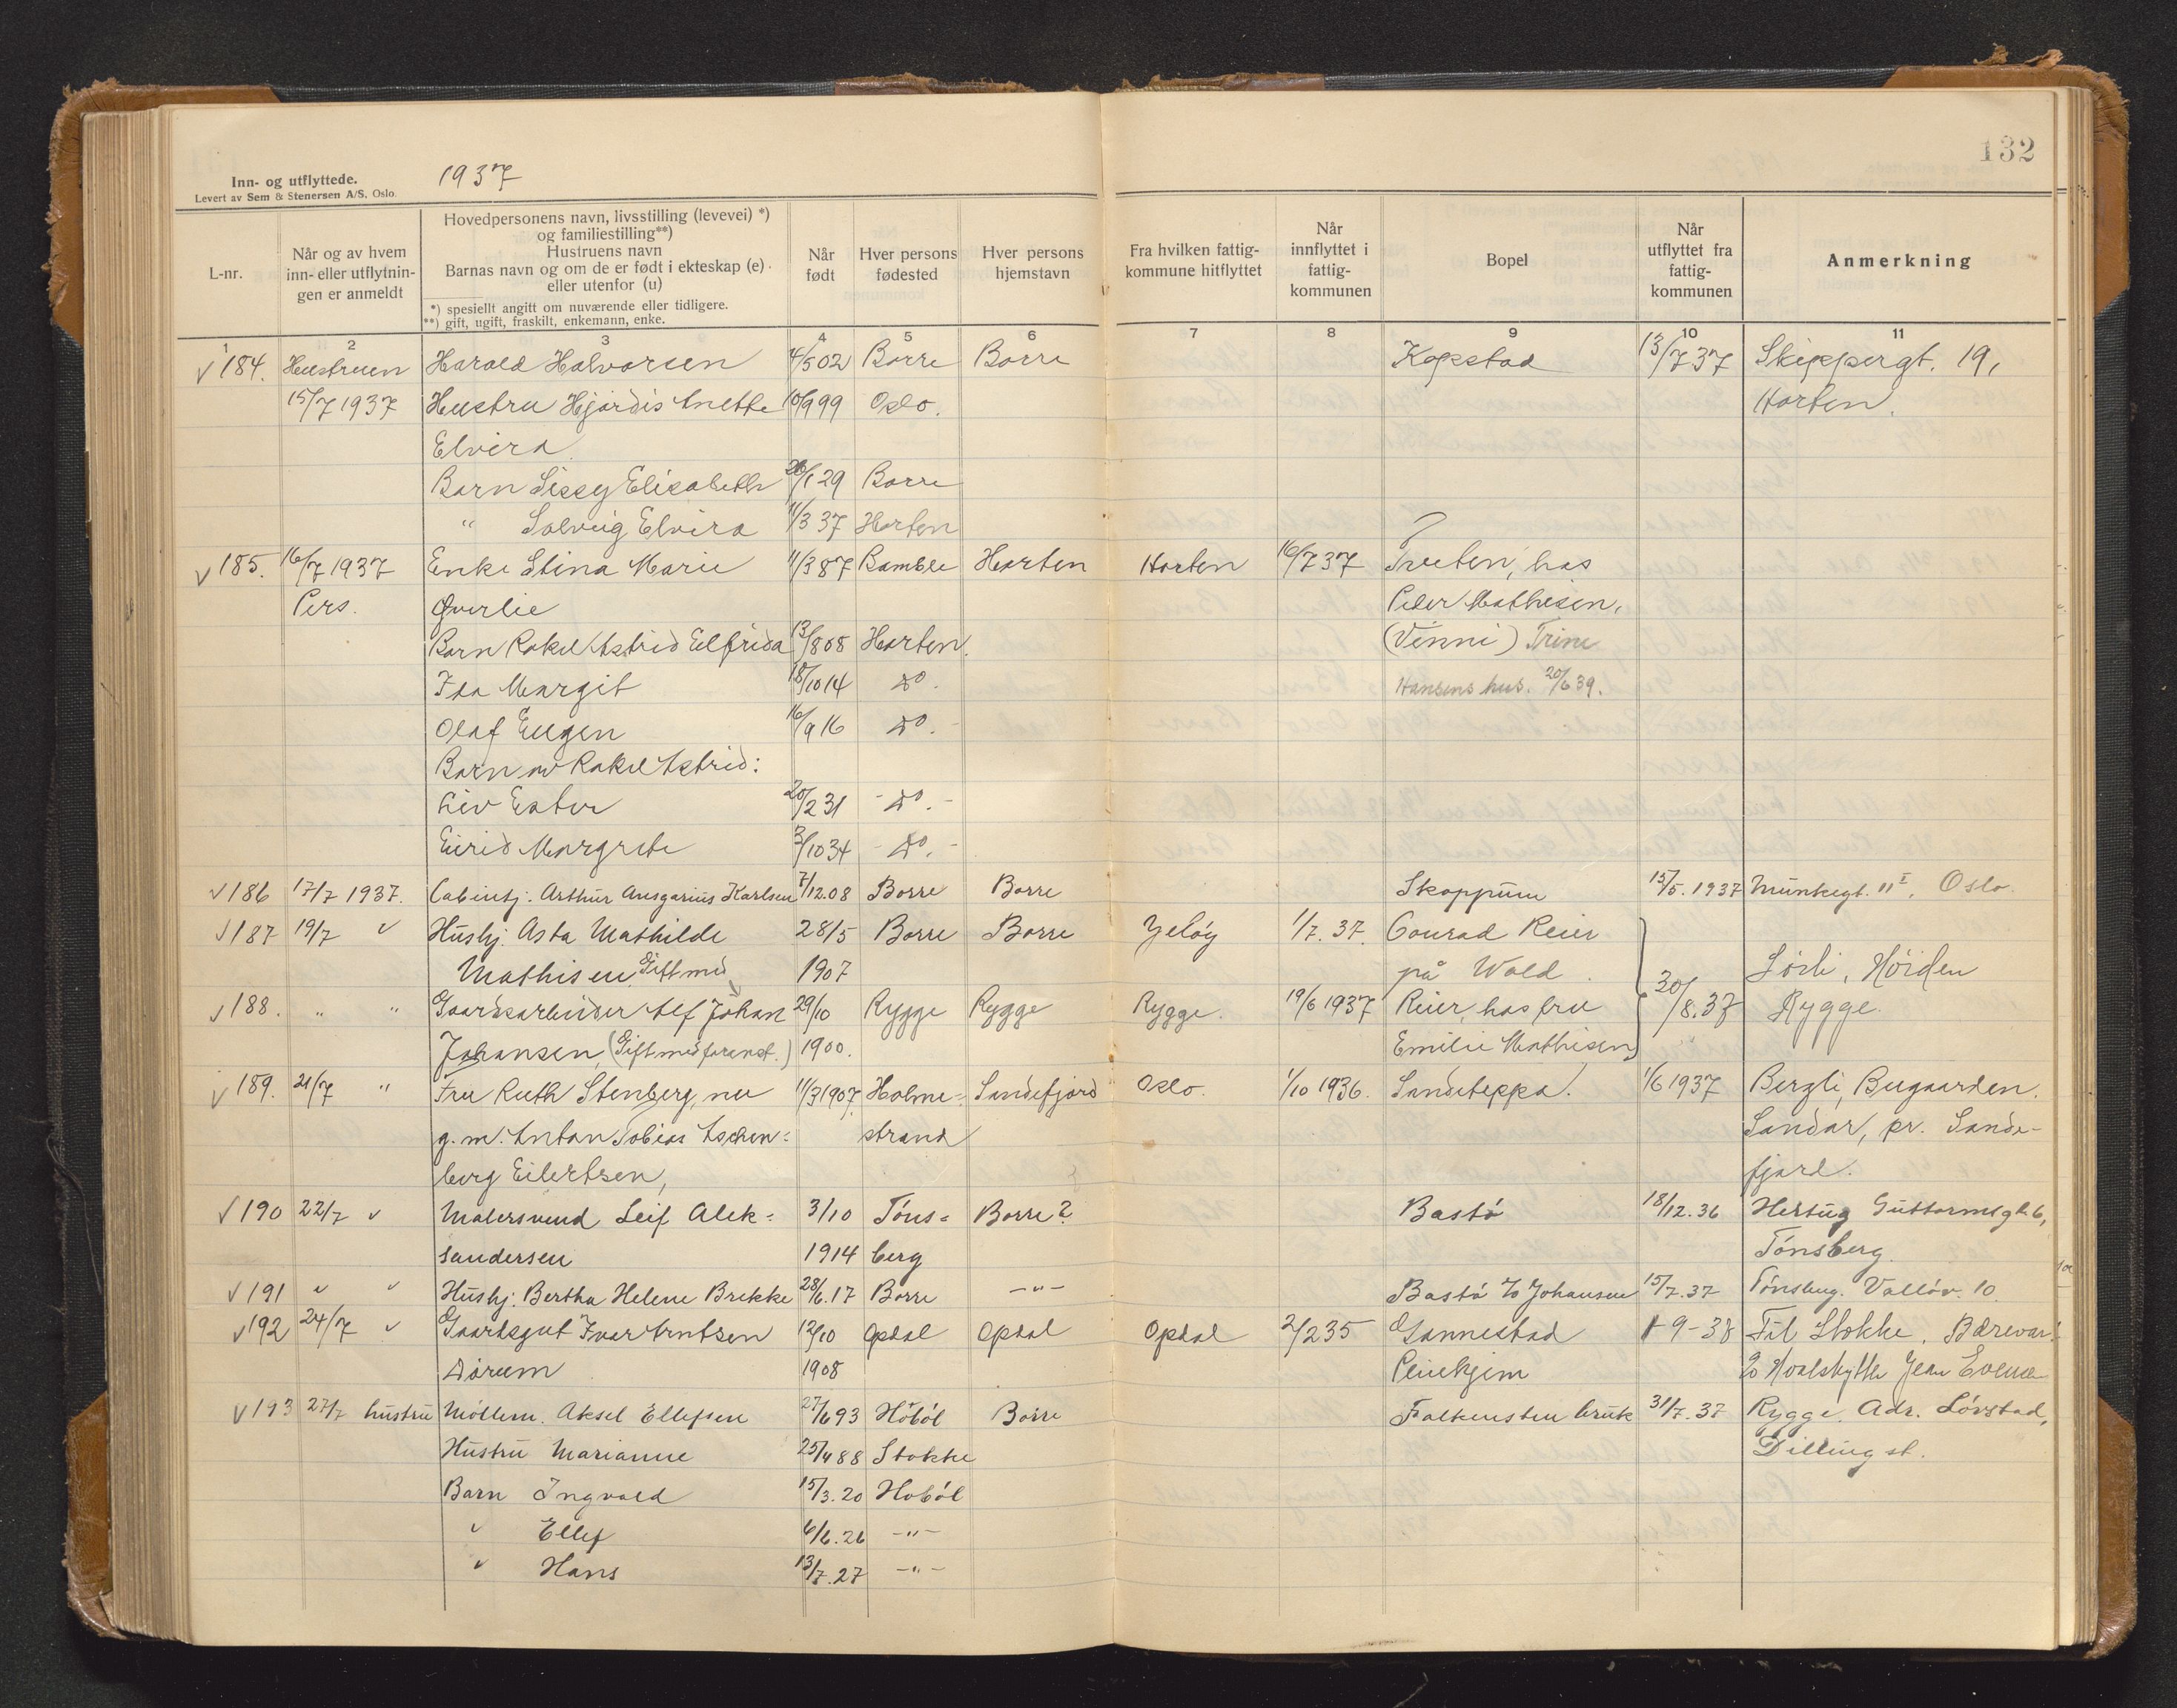 132
Inn- og utflyttede. 1937
Levert av Sem & Stenersen A/S, Oslo.
L-nr.
Når og av hvem inn- eller utflytnin- gen er anmeldt
Hovedpersonens navn, livsstilling (levevei) *)
og familiestilling**)
Hustruens navn
Barnas navn og om de er født i ekteskap (e)
eller utenfor (u)
*) spesiellt angitt om nuværende eller tidligere.
**) gift, ugift, fraskilt, enkemann, enke.
Når født
Hver persons fødested
Hver persons hjemstavn
Fra hvilken fattig- kommune hitflyttet
Når innflyttet i fattig- kommunen
Bopel
Når utflyttet fra fattig- kommunen
Anmerkning
1 2 3 4 5 6 7 8 9 10 11
√ 184. Hustruen Harald Halvorsen 4/5 02 Borre Borre Kopstad 13/7 37 Skippergt. 19,
15/7 1937 Hustru Hjørdis Anette 10/9 99 Oslo. Horten.
Elvira
Barn Lissy Elisabeth 26/1 29 Borre
" Solveig Elvira 11/3 37 Horten
√ 185. 16/7 1937 Enke Stina Marie 11/3 87 Bamble Horten Horten 16/7 37 Tveten, hos
Pers. Øverlie Peder Mathisen,
Barn Rakel Astrid Elfrida 13/8 08 Horten. (Vinni) Trine
Ida Margit 18/10 14 do. Hansens hus. 20/6 39.
Olaf Eugen 16/9 16 do.
Barn av Rakel Astrid:
Liv Ester 20/2 31 - do. -
Eirid Margrete 3/10 34 - do. -
√ 186 17/7 1937. Cabintj. Arthur Ansgarius Karlsen 7/12.08 Borre Borre Skoppum 15/5. 1937 Munkegt. 11 I, Oslo.
√ 187 19/7 " Hushj. Asta Mathilde 28/5 Borre Borre Jeløy 1/7. 37. Conrad Reier
Mathisen Gift med 1907 på Wold. Lørli, Høiden
√ 188. " " Gaardsarbeider Alf Johan 29/10 Rygge Rygge Rygge. 19/6 1937 Reier, hos fru 30/8.37 Rygge.
Johansen, (Gift med foranst.) 1900. Emilie Mathisen
√ 189. 21/7 " Fru Ruth Stenberg, nu 11/3 1907. Holme- Sandefjord Oslo. 1/10 1936. Sandeteppa. 1/6 1937 Bergli, Bugaarden.
g. m. Anton Tobias Aschen- strand Sandar, pr. Sande-
berg Eilertsen, fjord.
√ 190 22/7 " Malersvend Leif Alek- 3/10 Tøns- Borre? Bastø 18/12.36 Hertug Guttormsgt. 6,
sandersen 1914 berg Tønsberg.
√ 191 " " Hushj. Bertha Helene Brekke 28/6.17 Borre -"- Bastø c/o Johansen 15/7.37 Tønsberg. Valløv. 10.
√ 192 24/7 " Gaardsgut Ivar Arntsen 12/10 Opdal Opdal Opdal 2/2 35 Gannestad 1-9-38 Til Stokke.
Dørum 1908 Pleiehjem
√ 193 27/7 hustru Møllem. Aksel Ellefsen 27/6 93 Hobøl Borre Falkensten bruk 31/7.37 Rygge. Adr. Løvstad,
Hustru Marianne 25/4 88 Stokke Dilling st.
Barn Ingvald 15/3.20 Hobøl
" Ellef 6/6.26 -"-
" Hans 13/7.27 -"-